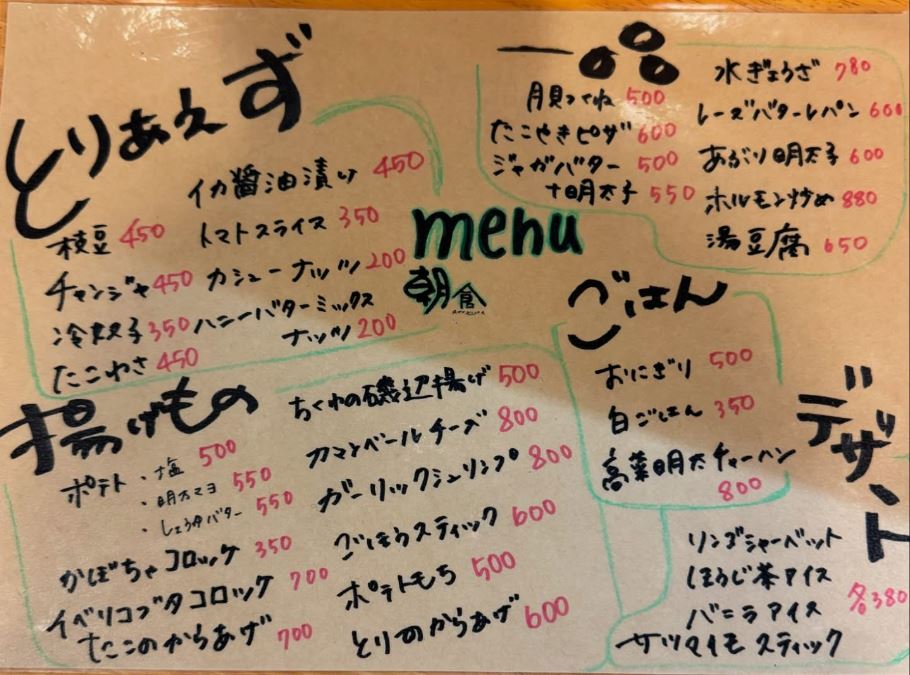 とりあえず
イカ醤油漬け 450
枝豆 450
トマトスライス 350
チャンジャ 450
カシューナッツ 200
冷奴 350
ハニーバターミックス
ナッツ 200
たこわさ 450
menu
朝倉
一品
月見つくね 500
たこやきピザ 600
ジャガバター 500
+明太子 550
水ぎょうざ 780
レーズンバターレパン 600
あぶり明太子 600
ホルモン炒め 880
湯豆腐 650
ごはん
おにぎり 500
白ごはん 350
高菜明太チャーハン
800
揚げもの
ポテト・塩 500
・明太マヨ 550
・しょうゆバター 550
かぼちゃコロッケ 350
イベリコブタコロッケ 700
たこのからあげ 700
ちくわの磯辺揚げ 500
カマンベールチーズ 800
ガーリックシュリンプ 800
ごぼうスティック 600
ポテトもち 500
とりのからあげ 600
デザート
リンゴシャーベット
ほうじ茶アイス
バニラアイス
サツマイモスティック
各380